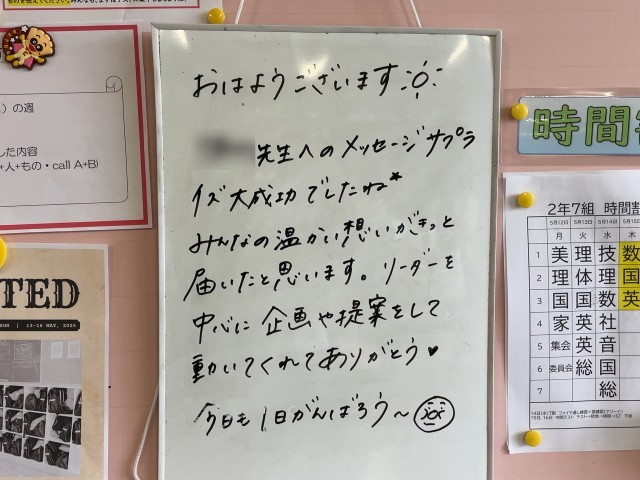 おはようございます
先生へのメッセージサプラ
イズ大成功でしたね*
みんなの温かい想いがきっと
届いたと思います。リーダーを
中心に企画や提案をして
動いてくれてありがとう♥
今日も1日がんばろう〜
の週
した内容
+人+もの・call A+B)
TED
13-16 MAY, 2025
時間
2年7組 時間割
5月12日 5月13日 5月14日 5月15日
月 火 水 木
1 美 理 技 数
2 理 体 理 国
3 国 国 数 英
4 家 英 社
5 集会 英 音
6 委員会 総 国
7 総